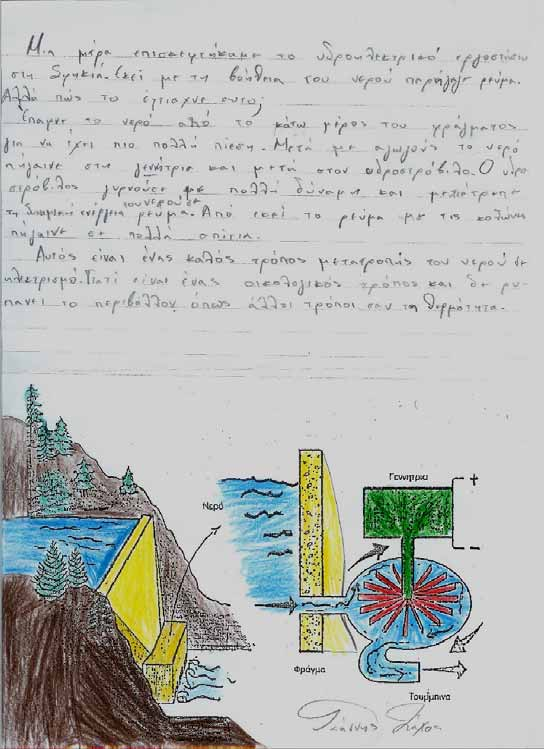 Μια μέρα επισκεφτήκαμε το υδροηλεκτρικό εργοστάσιο
στη Σφηκιά. Εκεί με τη βοήθεια του νερού παρήγαγε ρεύμα.
Αλλά πώς το έφτιαχνε αυτό;
Έπαιρνε το νερό από το κάτω μέρος του φράγματος
για να έχει πιο πολλή πίεση. Μετά με αγωγούς το νερό
πήγαινε στη γεννήτρια και μετά στον υδροστρόβιλο. Ο υδρο
στρόβιλος γυρνούσε με πολλή δύναμη και μετέτρεπε
τη δυναμική ενέργεια του νερού σε ρεύμα. Από εκεί το ρεύμα με τις κολώνες
πήγαινε σε πολλά σπίτια.
Αυτός είναι ένας καλός τρόπος μετατροπής του νερού σε
ηλεκτρισμό. Γιατί είναι ένας οικολογικός τρόπος και δε ρυ-
παίνει το περιβάλλον, όπως άλλοι τρόποι σαν τη θερμότητα.
Γεννήτρια
+
Νερό
Φράγμα
Τουρμπίνα